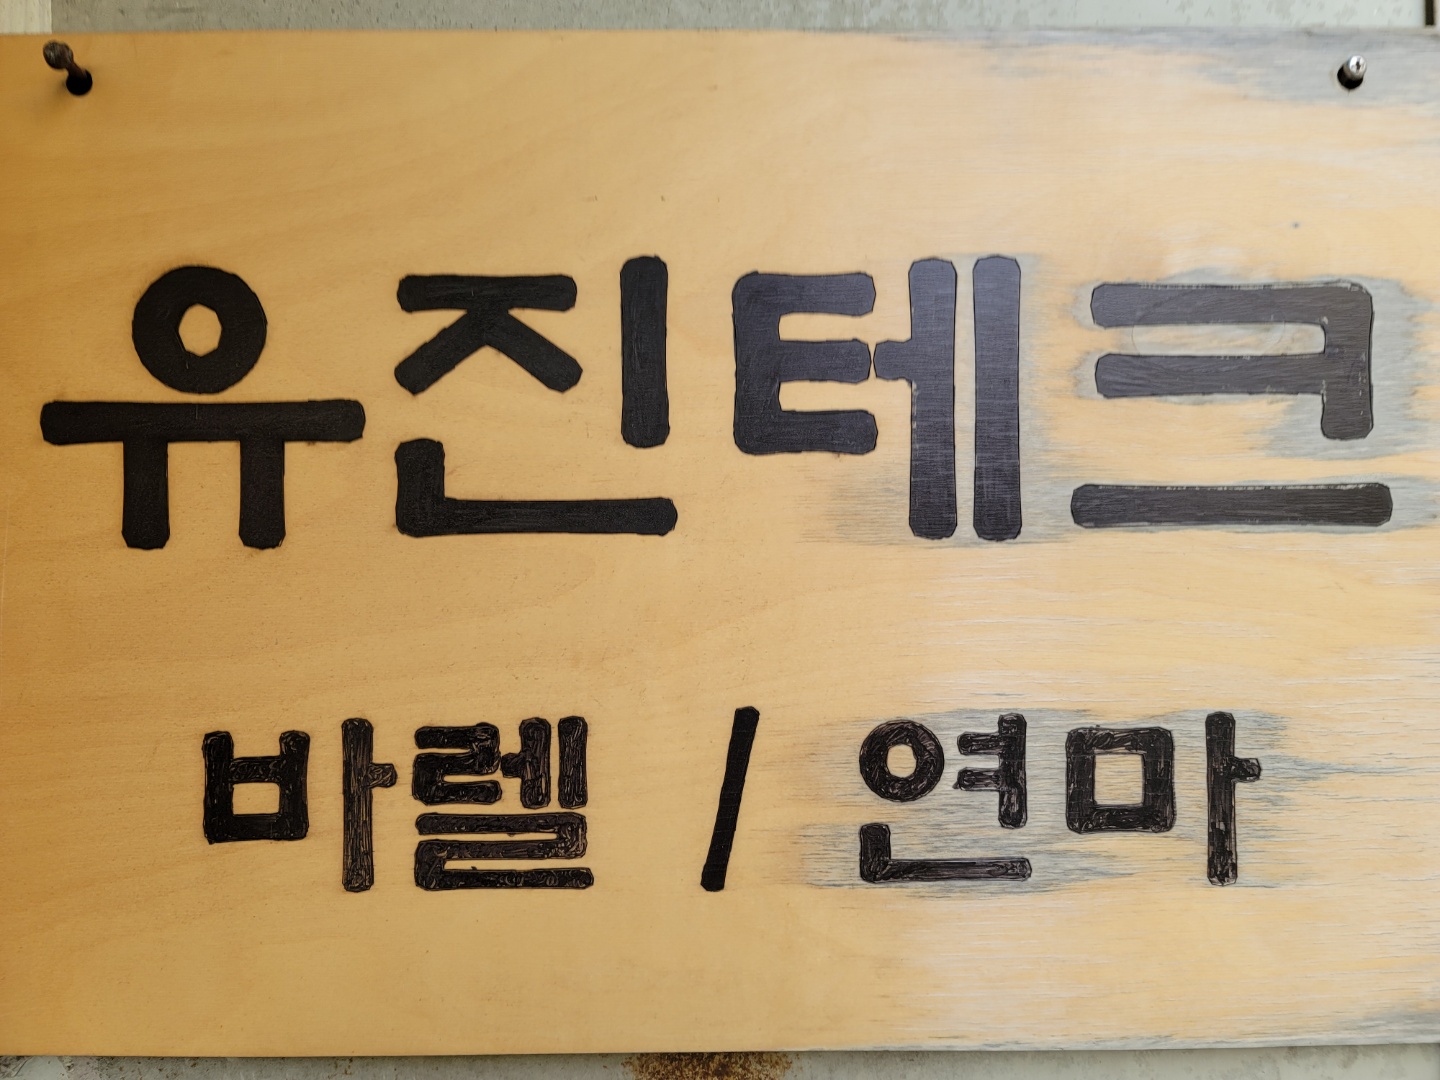 유진테크
바렐 / 연마